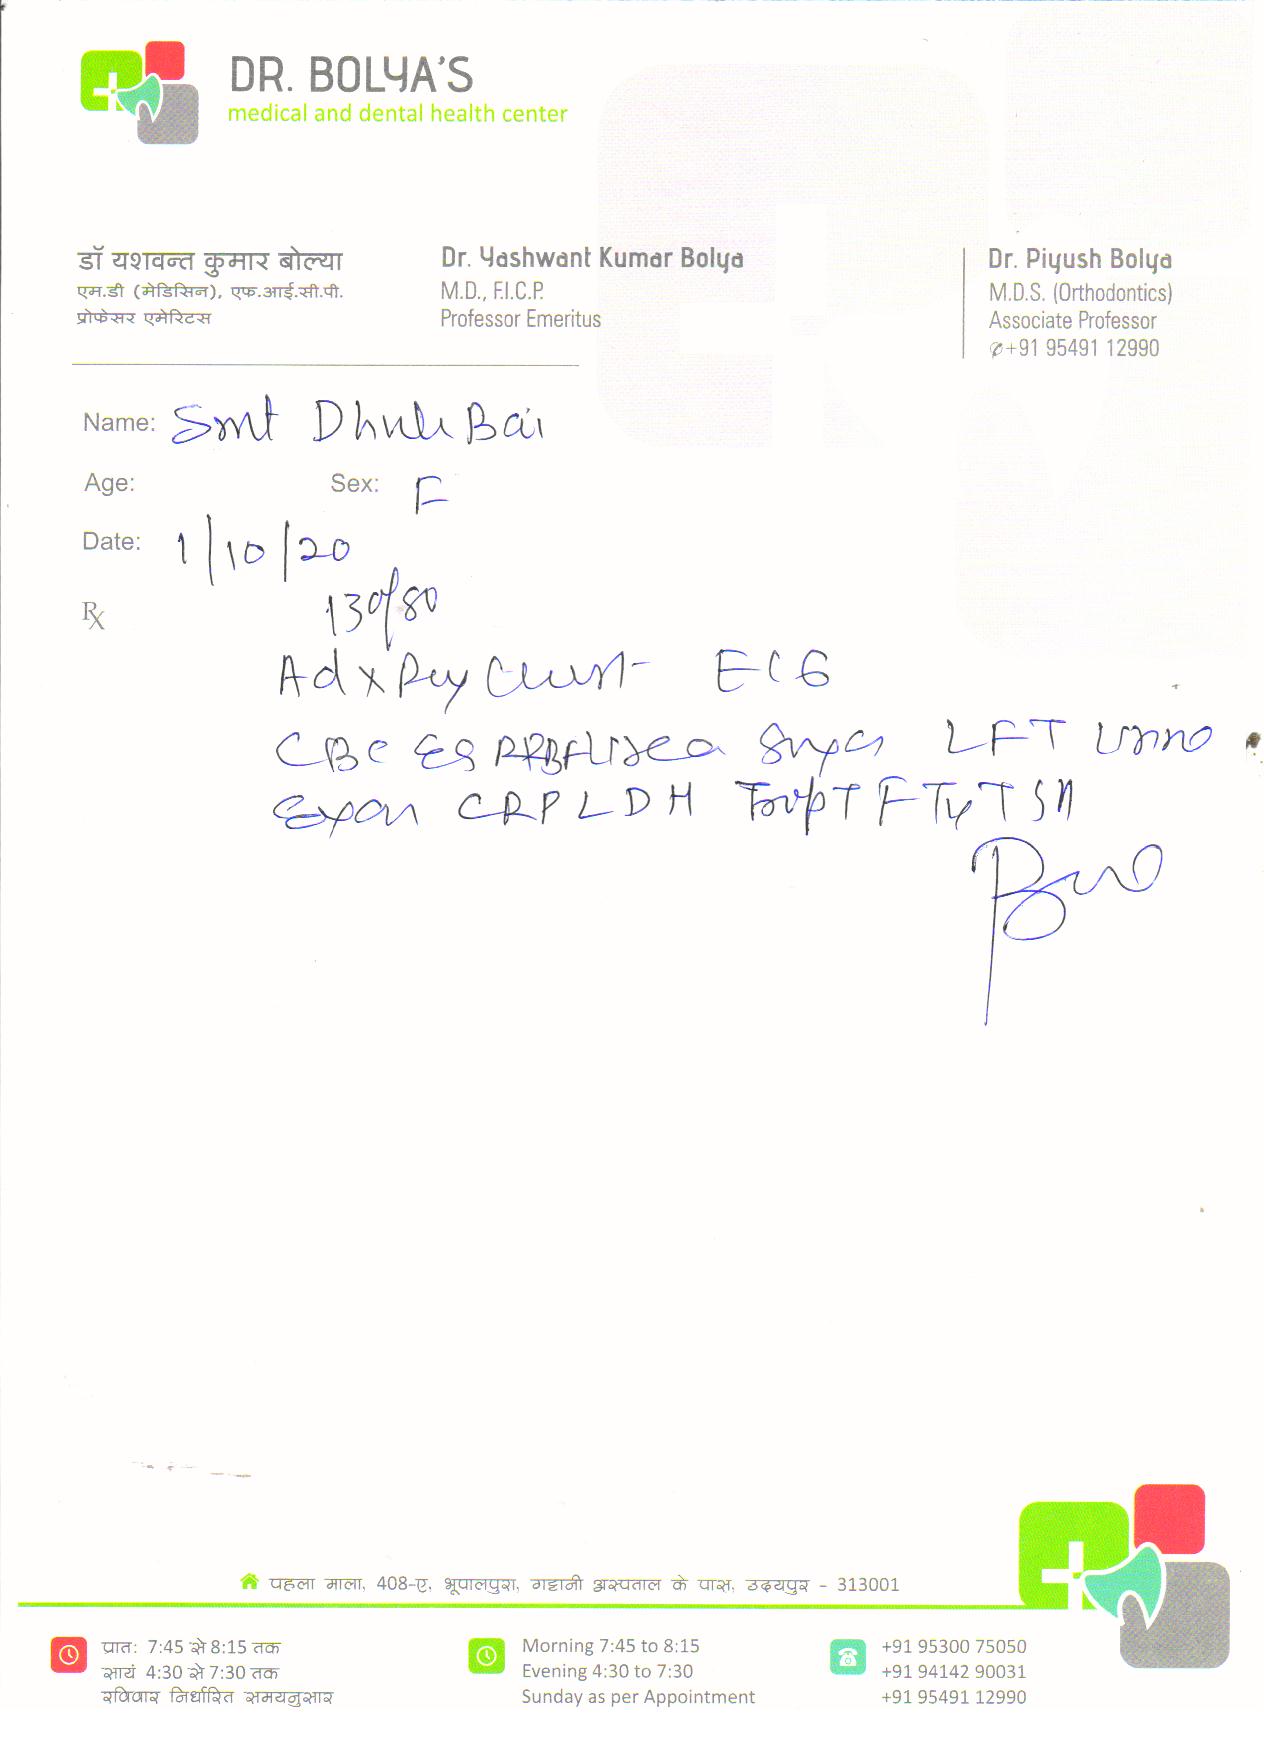 DR. BOLYA'S
medical and dental health center
डॉ यशवन्त कुमार बोल्या
एम.डी (मेडिसिन), एफ.आई.सी.पी.
प्रोफेसर एमेरिटस
Dr. Yashwant Kumar Bolya
M.D., F.I.C.P.
Professor Emeritus
Dr. Piyush Bolya
M.D.S. (Orthodontics)
Associate Professor
✆+91 95491 12990
Name: Smt Dhuli Bai
Age: Sex: F
Date: 1/10/20
Rx
130/80
Ad x Ray Chest ECG
CBC ESR Urea Sugar LFT Urine
Exam CRP LDH T F T4 TSH
पहला माला, 408-ए, भूपालपुरा, गट्टानी अस्पताल के पास, उदयपुर - 313001
प्रातः 7:45 से 8:15 तक
सायं 4:30 से 7:30 तक
रविवार निर्धारित समयनुसार
Morning 7:45 to 8:15
Evening 4:30 to 7:30
Sunday as per Appointment
+91 95300 75050
+91 94142 90031
+91 95491 12990